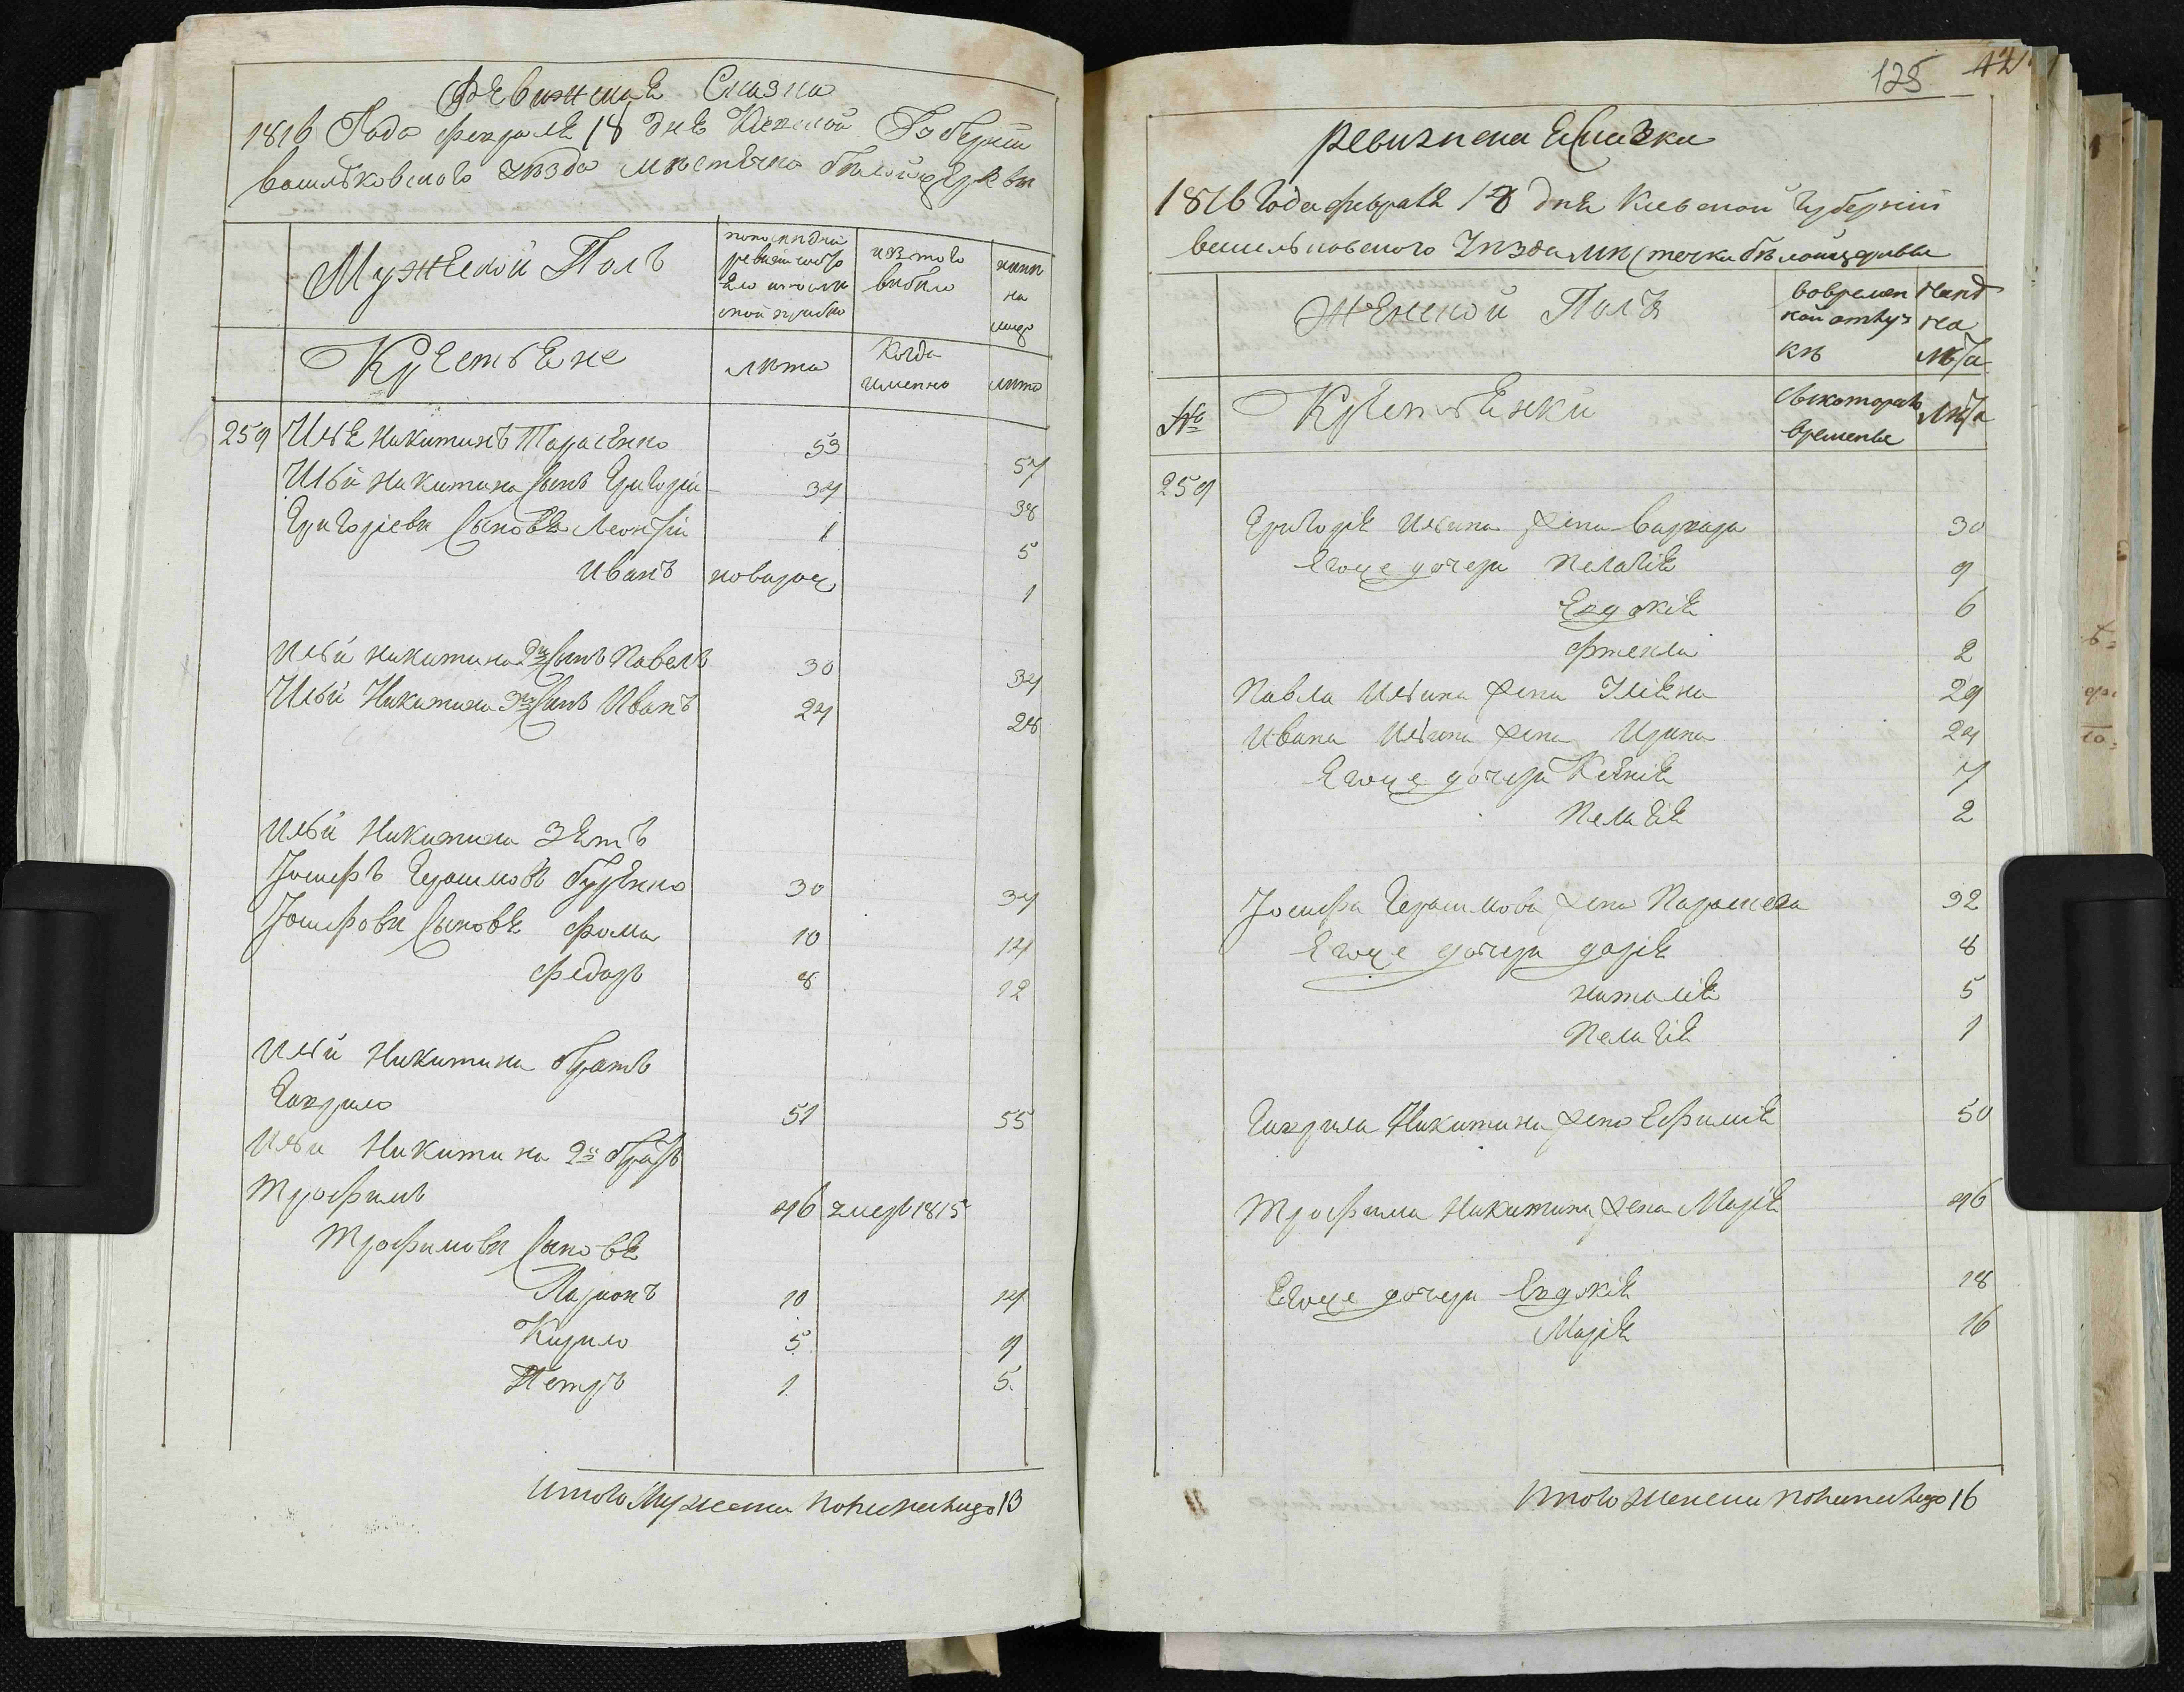 Ревижская Сказка
1816 Года февраля 18 дня Киевской Губернiи
васильковского уѣзда мѣстечка бѣлойцеркви
Мужеской Полъ
изтого
выбыло
нынѣ
на
лицо
Крестьяне
лѣта
Когда
именно
лѣта
259 Илья Никитинъ Тарасенко 53 57
Ильи Никитина сынъ Григорiй 34 38
Григорiеви сыновья Леонтiй 1 5
Иванъ новорож 1
Ильи Никитина 2й сынъ Павелъ 30 34
Ильи Никитина 3й сынъ Иванъ 24 28
Ильи Никитина зять
Iосифъ Герасимовъ Буренко 30 34
Iосифови сыновья Фома 10 14
Федоръ 8 12
Ильи Никитина братъ
Гаврило 51 55
Ильи Никитина 2й братъ
Трофимъ 46 умеръ 1815
Трофимови сыновья
Ларионъ 10 14
Кирило 5 9
Петръ 1 5.
Итого Мужеска поличналицо 13
125 42
ревизская Сказка
1816 Года февраля 18 дня Киевской Губернiи
васильковского уѣзда мѣстечка бѣлойцеркви
Женской Полъ
вовремен
ной отлуч
кѣ
нынѣ
на
лицо
№
Крестьянки
съкотораго
времени
Лѣта
259
Григорiя Ильина жена Варвара 30
Егоже дочери Пелагiя 9
Евдокiя 6
Фтекла 2
Павла Ильина жена Улiяна 29
Ивана Ильина жена Ирина 24
Егоже дочери Ксѣнiя 7
Пелагiя 2
Iосифа Герасимова жена Параскева 32
Егоже дочери дарiя 8
наталiя 5
Пелагiя 1
Гаврила Никитина жена Ефимiя 50
Трофима Никитина жена Марiя 46
Егоже дочери Евдокiя 18
Марiя 16
Итого женска поличналицо 16